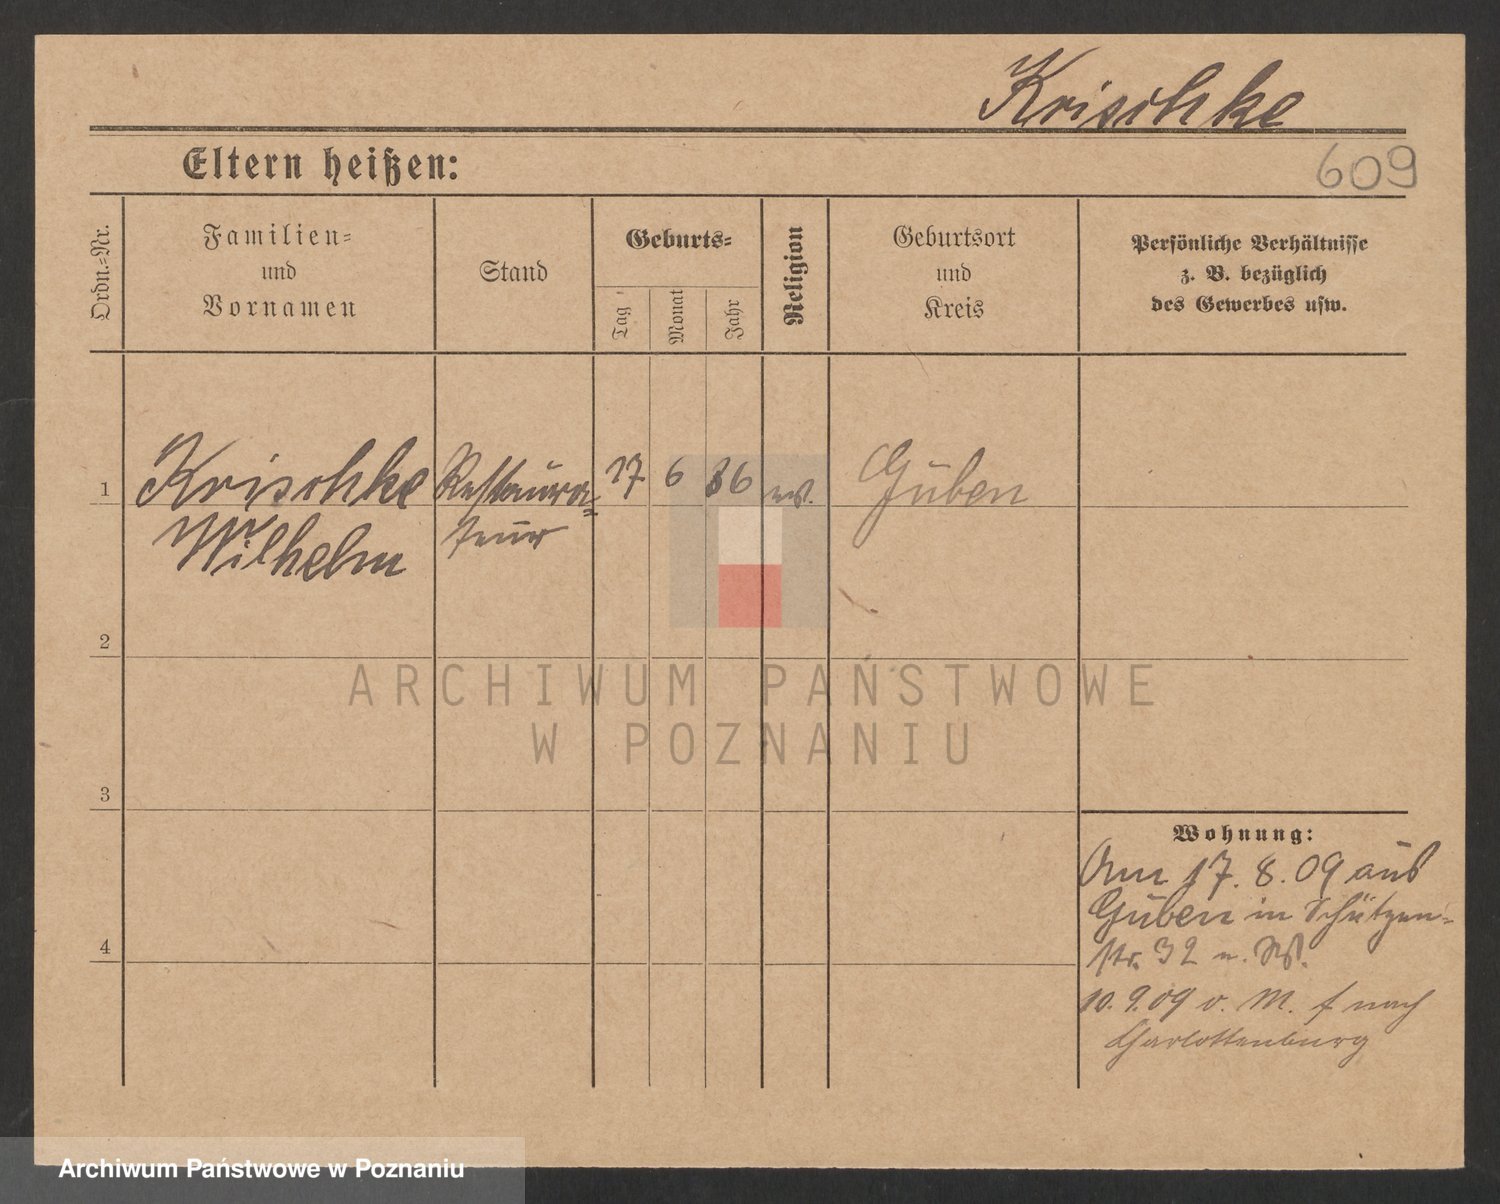 Krischke
Eltern heißen:
609
Ordn.=Nr.
Familien=
und
Vornamen
Stand
Geburts=
Tag
Monat
Jahr
Religion
Geburtsort
und
Kreis
Persönliche Verhältnisse
z. B. bezüglich
des Gewerbes usw.
1
Krischke
Wilhelm
Restaura=
teur
17
6
86
ev.
Guben
2
3
4
Wohnung:
Am 17. 8. 09 aus
Guben in Schützen=
str. 32
10. 9. 09 v. M. f nach
Charlottenburg
ARCHIWUM PAŃSTWOWE
W POZNANIU
Archiwum Państwowe w Poznaniu